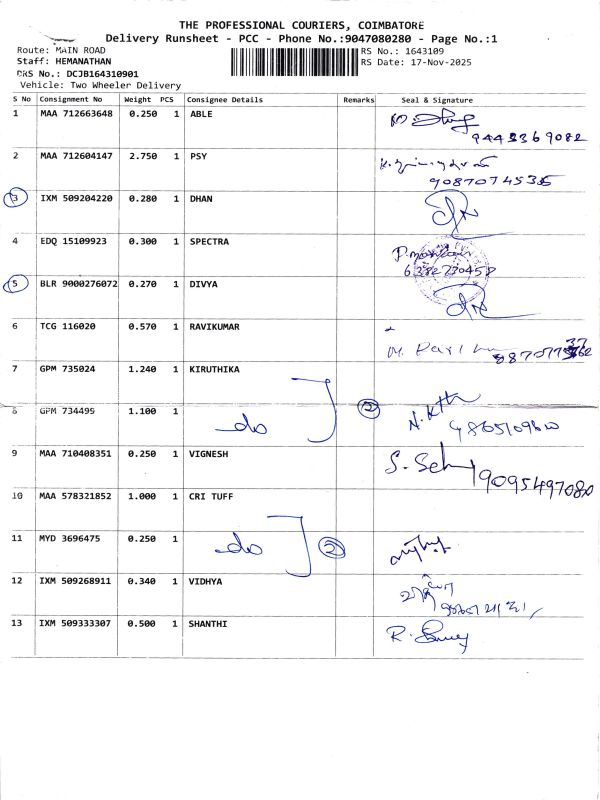 THE PROFESSIONAL COURIERS, COIMBATORE
Delivery Runsheet - PCC - Phone No.:9047080280 - Page No.:1
Route: MAIN ROAD
RS No.: 1643109
Staff: HEMANATHAN
RS Date: 17-Nov-2025
DRS No.: DCJB164310901
Vehicle: Two Wheeler Delivery
S No Consignment No Weight PCS Consignee Details Remarks Seal & Signature
1 MAA 712663648 0.250 1 ABLE
9443369082
2 MAA 712604147 2.750 1 PSY
9087074535
3 IXM 509204220 0.280 1 DHAN
4 EDQ 15109923 0.300 1 SPECTRA
6382730458
5 BLR 9000276072 0.270 1 DIVYA
6 TCG 116020 0.570 1 RAVIKUMAR
7 GPM 735024 1.240 1 KIRUTHIKA
8 GPM 734499 1.100 1 do 2
9 MAA 710408351 0.250 1 VIGNESH
9095497080
10 MAA 578321852 1.000 1 CRI TUFF
11 MYD 3696475 0.250 1 do 2
12 IXM 509268911 0.340 1 VIDHYA
13 IXM 509333307 0.500 1 SHANTHI